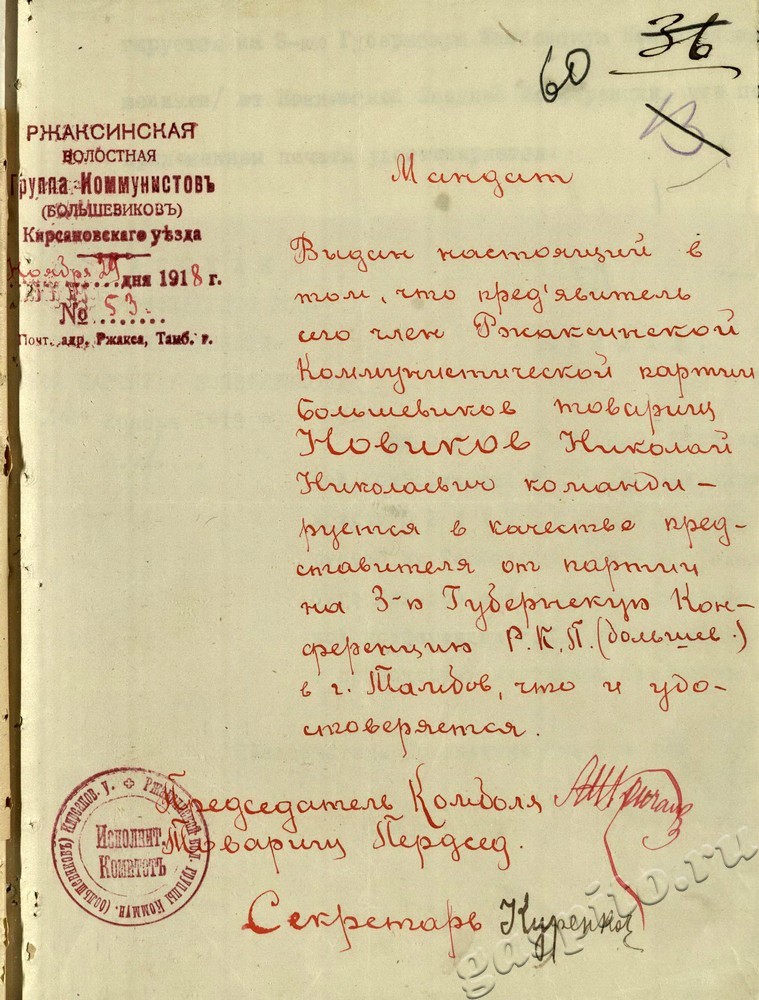 60 36
13
РЖАКСИНСКАЯ
ВОЛОСТНАЯ
Группа Коммунистовъ
(БОЛЬШЕВИКОВЪ)
Кирсановскаго уѣзда
Ноября 29 дня 1918 г.
№ 53
Почт. адр. Ржакса, Тамб. г.
Мандат
Выдан настоящий в
том, что пред'явитель
сего член Ржаксинской
Коммунистической партии
большевиков товарищ
Новиков Николай
Николаевич команди-
руется в качестве пред-
ставителя от партии
на 3-ю Губернскую Кон-
ференцию Р.К.П. (большев.)
в г. Тамбов, что и удо-
стоверяется.
Председатель Комболя
Товарищ Пердсед.
Секретарь
Исполнит.
Комитетъ
группы Коммун. (большевиков) Кирсанов. у.
gaspito.ru